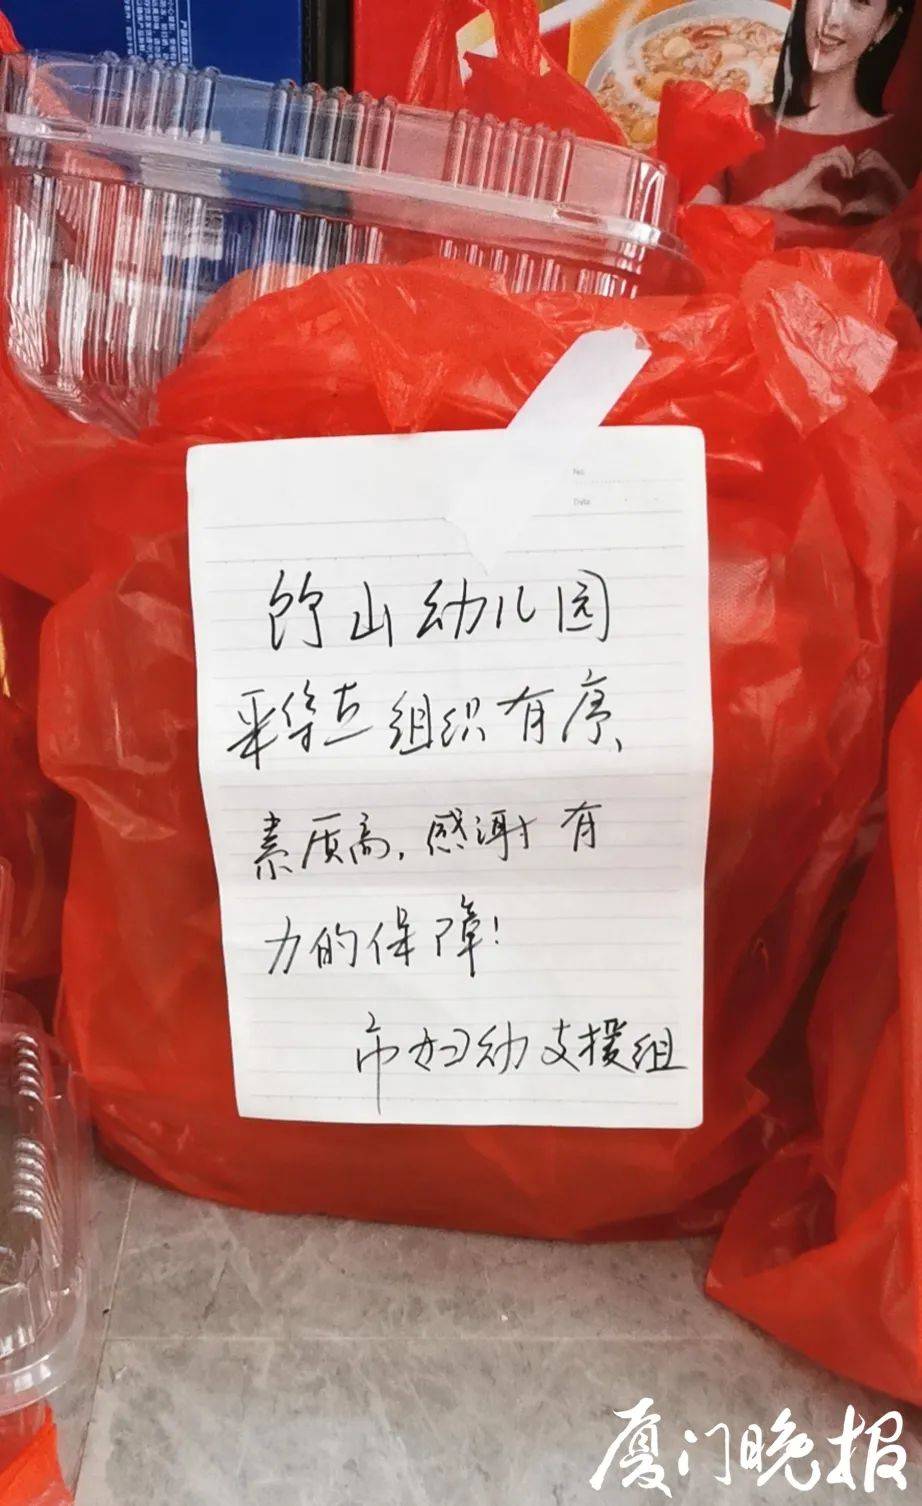 竹山幼儿园
组织有序、
素质高，感谢有
力的保障！
市妇幼支援组
No.
Date
厦门晚报